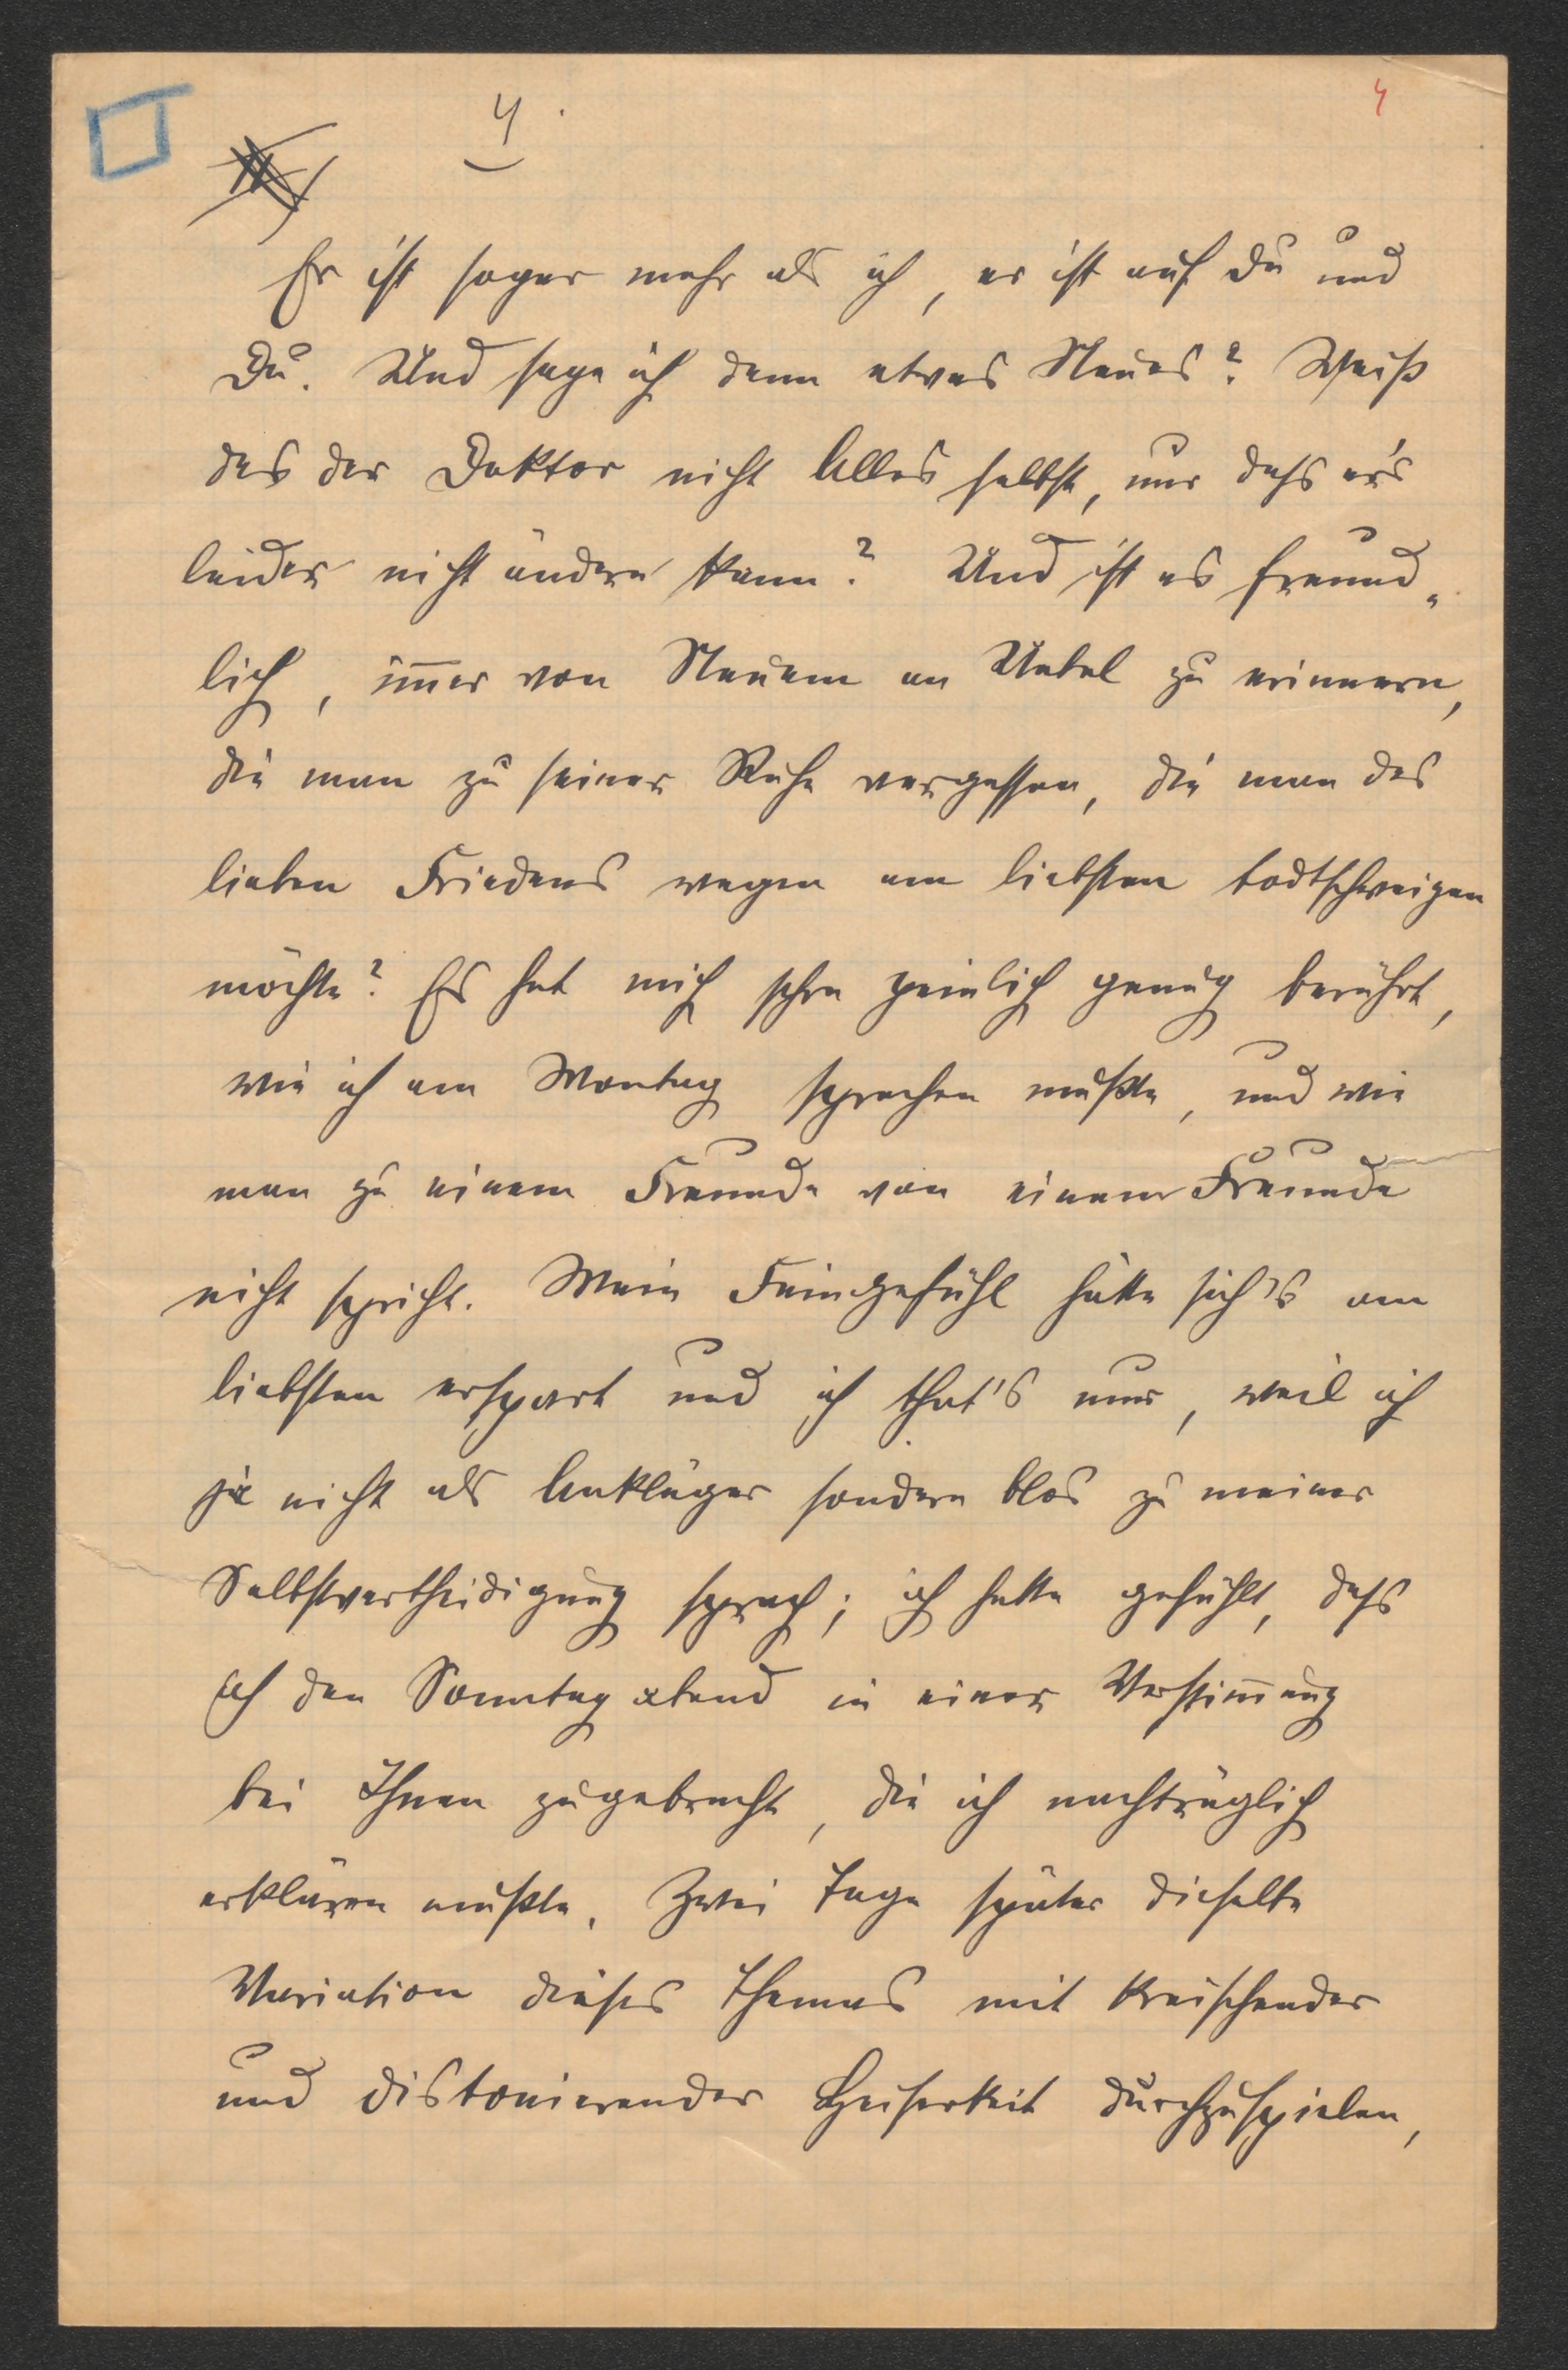 4.
4
Er ist sogar mehr als ich, er ist auf Du und
Du. Und sage ich denn etwas Neues? Weiß
das der Doktor nicht Alles selbst, nur dass er's
leider nicht ändern kann? Und ist es freund„
lich, im̅er von Neuem an Uebel zu erinnern,
die man zu seiner Ruhe vergessen, die man des
lieben Friedens wegen am liebsten todtschweigen
möchte? Es hat mich schon peinlich genug berührt,
wie ich am Montag sprechen mußte, und wie
man zu einem Freunde von einem Freunde
nicht spricht. Mein Feingefühl hätte sich's am
liebsten erspart und ich that's nur, weil ich
ja nicht als Ankläger sondern blos zu meiner
Selbstvertheidigung sprach; ich hatte gefühlt, dass
ich den Sonntag abend in einer Verstim̅ung
bei Ihnen zugebracht, die ich nachträglich
erklären mußte. Zwei Tage später dieselbe
Variation dieses Themas mit kreischender
und distonierender Heiserkeit durchzuspielen,